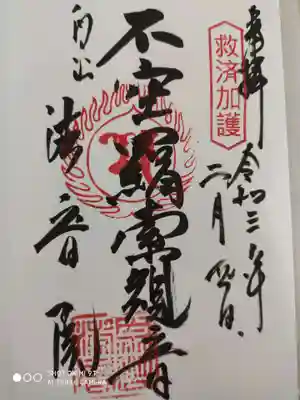 奉拝
救済加護
令和三年
二月 四日
不空羂索観音
音閣
SHOT ON MI 9T
AI TRIPLE CAMERA